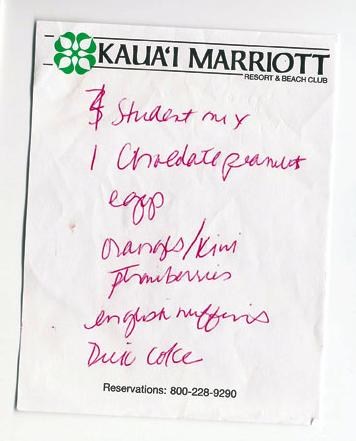 KAUA'I MARRIOTT
RESORT & BEACH CLUB
Student mix
1 Chocolate peanut
eggs
oranges/kiwi
strawberries
english muffins
Diet coke
Reservations: 800-228-9290